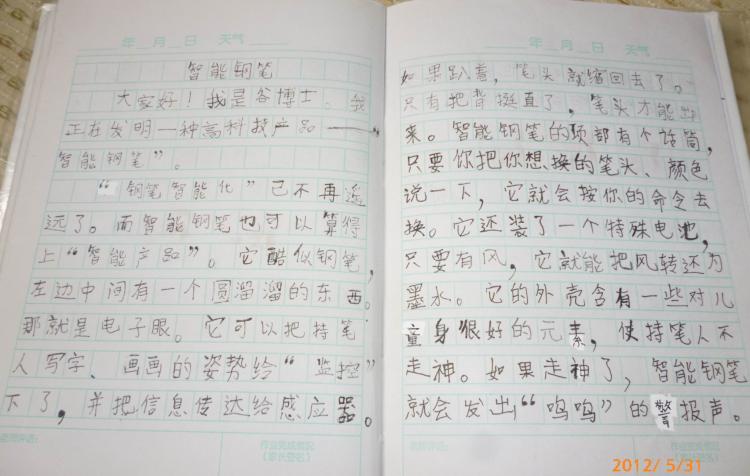 年 月 日 天气
智能钢笔
大家好！我是谷博士、我
正在发明一种高科技产品——“
智能钢笔”。
“钢笔智能化”已不再遥
远了。而智能钢笔也可以算得
上“智能产品”。它酷似钢笔，
左边中间有一个圆溜溜的东西。
那就是电子眼。它可以把持笔
人写字、画画的姿势给“监控”
下了，并把信息传达给感应器。
作业完成情况
（家长签名）
年 月 日 天气
如果趴着，笔头就缩回去了。
只有把背挺直了，笔头才能出
来。智能钢笔的项部有个话筒，
只要你把你想换的笔头、颜色
说一下，它就会按你的命令去
换。它还装了一个特殊电池，
只要有风，它就能把风转还为
墨水。它的外壳含有一些对儿
童身很好的元素，使持笔人不
走神。如果走神了，智能钢笔
就会发出“呜呜”的警报声。
作业完成情况
（家长签名）
2012/5/31